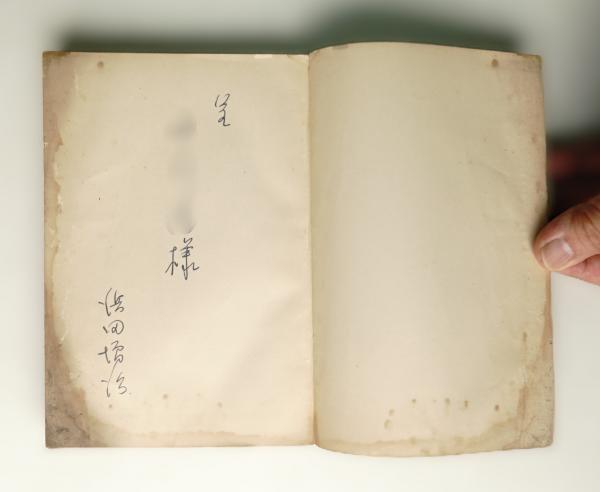 呈
様
浜田増治